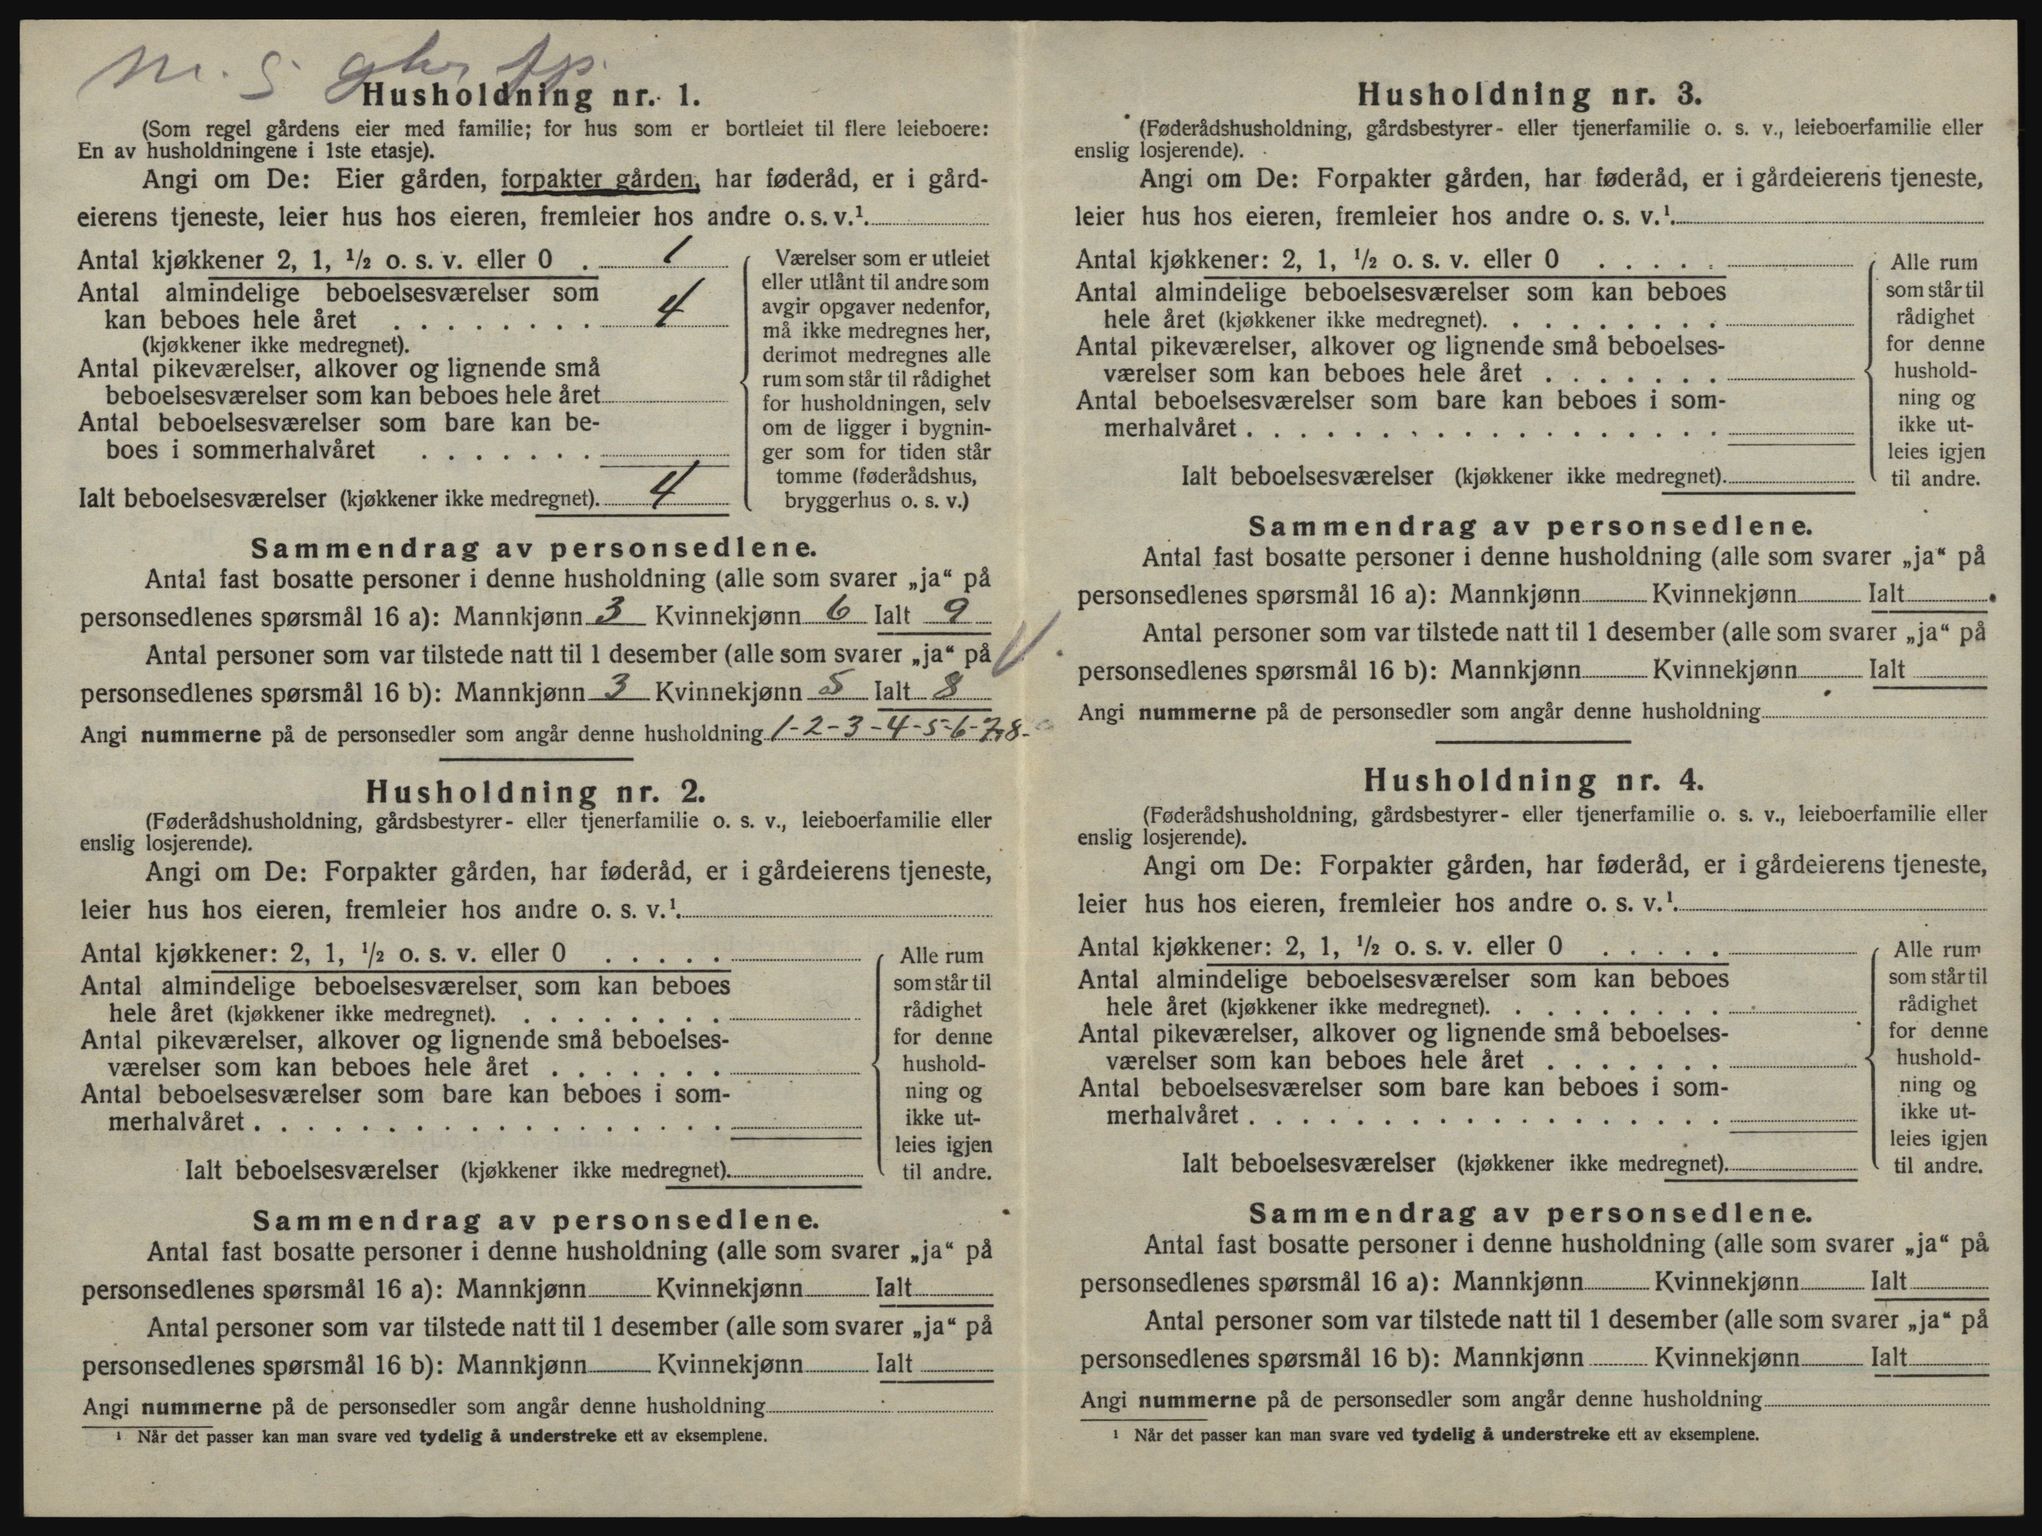 m. g. gbr fp.
Husholdning nr. 1.
(Som regel gårdens eier med familie; for hus som er bortleiet til flere leieboere:
En av husholdningene i 1ste etasje).
Angi om De: Eier gården, forpakter gården, har føderåd, er i gård-
eierens tjeneste, leier hus hos eieren, fremleier hos andre o. s. v.¹.
Antal kjøkkener 2, 1, ½ o. s. v. eller 0 . 1
Antal almindelige beboelsesværelser som
kan beboes hele året . . . . . . . . 4
(kjøkkener ikke medregnet).
Antal pikeværelser, alkover og lignende små
beboelsesværelser som kan beboes hele året
Antal beboelsesværelser som bare kan be-
boes i sommerhalvåret . . . . . . .
Ialt beboelsesværelser (kjøkkener ikke medregnet). 4
Værelser som er utleiet
eller utlånt til andre som
avgir opgaver nedenfor,
må ikke medregnes her,
derimot medregnes alle
rum som står til rådighet
for husholdningen, selv
om de ligger i bygnin-
ger som for tiden står
tomme (føderådshus,
bryggerhus o. s. v.)
Sammendrag av personsedlene.
Antal fast bosatte personer i denne husholdning (alle som svarer „ja“ på
personsedlenes spørsmål 16 a): Mannkjønn 3 Kvinnekjønn 6 Ialt 9
Antal personer som var tilstede natt til 1 desember (alle som svarer „ja“ på
personsedlenes spørsmål 16 b): Mannkjønn 3 Kvinnekjønn 5 Ialt 8
Angi nummerne på de personsedler som angår denne husholdning 1-2-3-4-5-6-7-8-
Husholdning nr. 2.
(Føderådshusholdning, gårdsbestyrer- eller tjenerfamilie o. s. v., leieboerfamilie eller
enslig losjerende).
Angi om De: Forpakter gården, har føderåd, er i gårdeierens tjeneste,
leier hus hos eieren, fremleier hos andre o. s. v.¹.
Antal kjøkkener: 2, 1, ½ o. s. v. eller 0 . . . . .
Antal almindelige beboelsesværelser, som kan beboes
hele året (kjøkkener ikke medregnet). . . . . . . . .
Antal pikeværelser, alkover og lignende små beboelses-
værelser som kan beboes hele året . . . . . . .
Antal beboelsesværelser som bare kan beboes i som-
merhalvåret . . . . . . . . . . . . . . . . . .
Ialt beboelsesværelser (kjøkkener ikke medregnet).
Alle rum
som står til
rådighet
for denne
hushold-
ning og
ikke ut-
leies igjen
til andre.
Sammendrag av personsedlene.
Antal fast bosatte personer i denne husholdning (alle som svarer „ja“ på
personsedlenes spørsmål 16 a): Mannkjønn Kvinnekjønn Ialt
Antal personer som var tilstede natt til 1 desember (alle som svarer „ja“ på
personsedlenes spørsmål 16 b): Mannkjønn Kvinnekjønn Ialt
Angi nummerne på de personsedler som angår denne husholdning
¹ Når det passer kan man svare ved tydelig å understreke ett av eksemplene.
Husholdning nr. 3.
(Føderådshusholdning, gårdsbestyrer- eller tjenerfamilie o. s. v., leieboerfamilie eller
enslig losjerende).
Angi om De: Forpakter gården, har føderåd, er i gårdeierens tjeneste,
leier hus hos eieren, fremleier hos andre o. s. v.¹.
Antal kjøkkener: 2, 1, ½ o. s. v. eller 0 . . . . .
Antal almindelige beboelsesværelser som kan beboes
hele året (kjøkkener ikke medregnet). . . . . . . . .
Antal pikeværelser, alkover og lignende små beboelses-
værelser som kan beboes hele året . . . . . . .
Antal beboelsesværelser som bare kan beboes i som-
merhalvåret . . . . . . . . . . . . . . . . . .
Ialt beboelsesværelser (kjøkkener ikke medregnet).
Alle rum
som står til
rådighet
for denne
hushold-
ning og
ikke ut-
leies igjen
til andre.
Sammendrag av personsedlene.
Antal fast bosatte personer i denne husholdning (alle som svarer „ja“ på
personsedlenes spørsmål 16 a): Mannkjønn Kvinnekjønn Ialt
Antal personer som var tilstede natt til 1 desember (alle som svarer „ja“ på
personsedlenes spørsmål 16 b): Mannkjønn Kvinnekjønn Ialt
Angi nummerne på de personsedler som angår denne husholdning
Husholdning nr. 4.
(Føderådshusholdning, gårdsbestyrer- eller tjenerfamilie o. s. v., leieboerfamilie eller
enslig losjerende).
Angi om De: Forpakter gården, har føderåd, er i gårdeierens tjeneste,
leier hus hos eieren, fremleier hos andre o. s. v.¹.
Antal kjøkkener: 2, 1, ½ o. s. v. eller 0 . . . . .
Antal almindelige beboelsesværelser som kan beboes
hele året (kjøkkener ikke medregnet). . . . . . . . .
Antal pikeværelser, alkover og lignende små beboelses-
værelser som kan beboes hele året . . . . . . .
Antal beboelsesværelser som bare kan beboes i som-
merhalvåret . . . . . . . . . . . . . . . . . .
Ialt beboelsesværelser (kjøkkener ikke medregnet).
Alle rum
som står til
rådighet
for denne
hushold-
ning og
ikke ut-
leies igjen
til andre.
Sammendrag av personsedlene.
Antal fast bosatte personer i denne husholdning (alle som svarer „ja“ på
personsedlenes spørsmål 16 a): Mannkjønn Kvinnekjønn Ialt
Antal personer som var tilstede natt til 1 desember (alle som svarer „ja“ på
personsedlenes spørsmål 16 b): Mannkjønn Kvinnekjønn Ialt
Angi nummerne på de personsedler som angår denne husholdning
¹ Når det passer kan man svare ved tydelig å understreke ett av eksemplene.